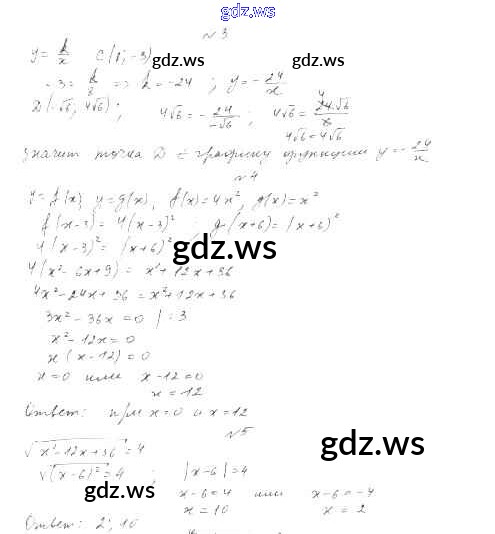 gdz.ws
№3
y = k/x C(8; -3)
gdz.ws gdz.ws
-3 = k/8 => k = -24 ; y = -24/x
D(-√6; 4√6); 4√6 = -24/-√6 ; 4√6 = 24·√6/6
4√6 = 4√6
значит точка D ∈ графику функции y = -24/x
№4
y = f(x), y = g(x), f(x) = 4x², g(x) = x²
f(x-3) = 4(x-3)² ; g(x+6) = (x+6)²
4(x-3)² = (x+6)²
gdz.ws
4(x² - 6x + 9) = x² + 12x + 36
4x² - 24x + 36 = x² + 12x + 36
3x² - 36x = 0 | : 3
x² - 12x = 0
x(x-12) = 0
x = 0 или x - 12 = 0
x = 12
Ответ: при x = 0 и x = 12
№5
gdz.ws
√x² - 12x + 36 = 4
√(x-6)² = 4 ; |x-6| = 4
gdz.ws gdz.ws
x - 6 = 4 или x - 6 = -4
x = 10 x = 2
Ответ: 2; 10